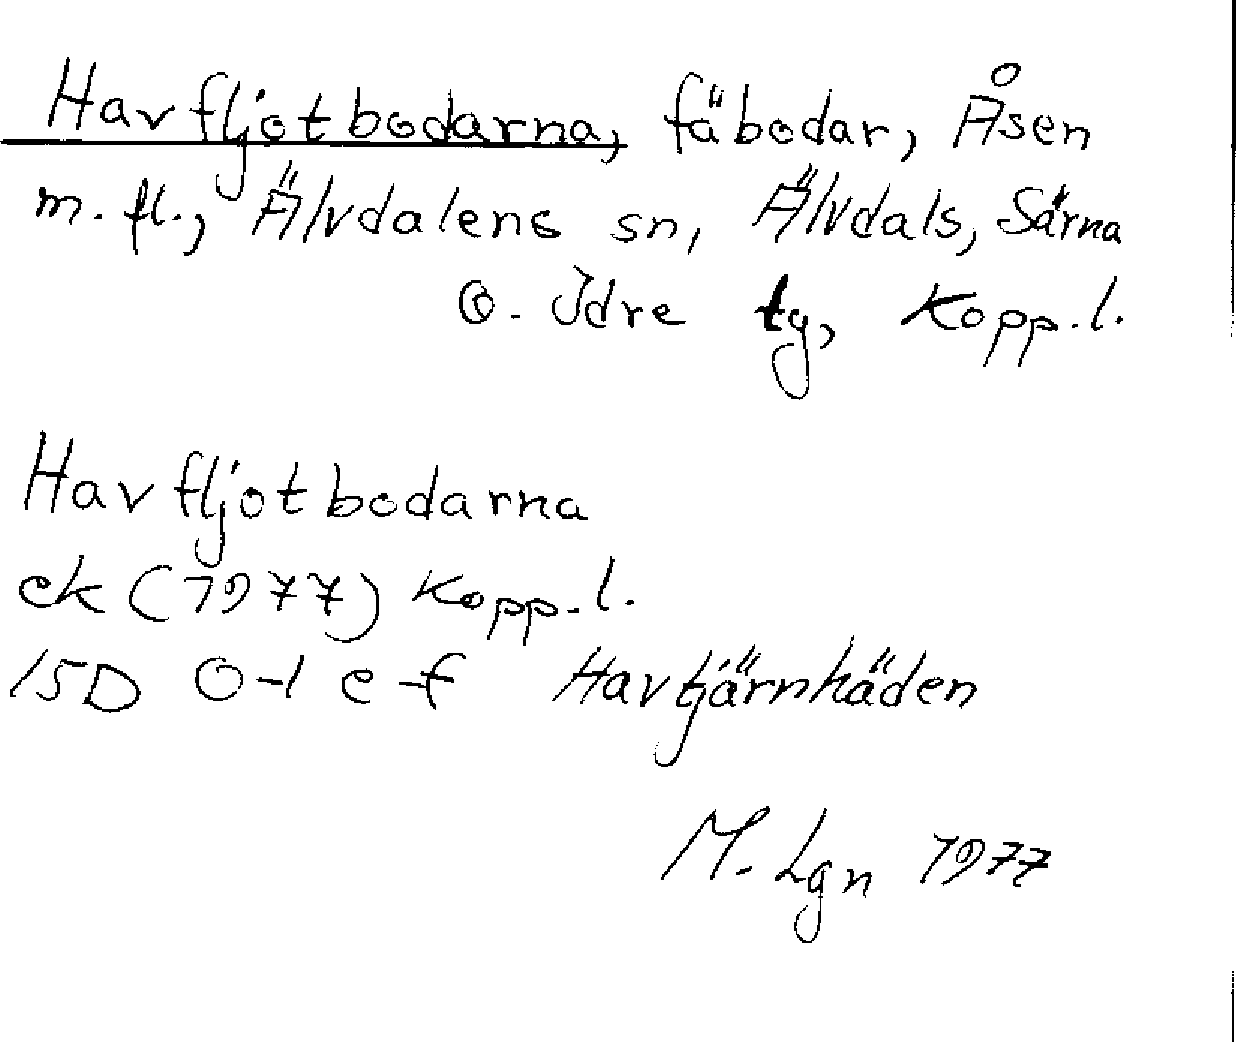 Havfljotbodarna, fäbodar, Åsen
m. fl., Älvdalens sn, Älvdals, Särna
o. Idre tg, Kopp. l.
Havfljotbodarna
ek (1977) Kopp. l.
15D 0-1 e-f Havtjärnhäden
M. Lgn 1977